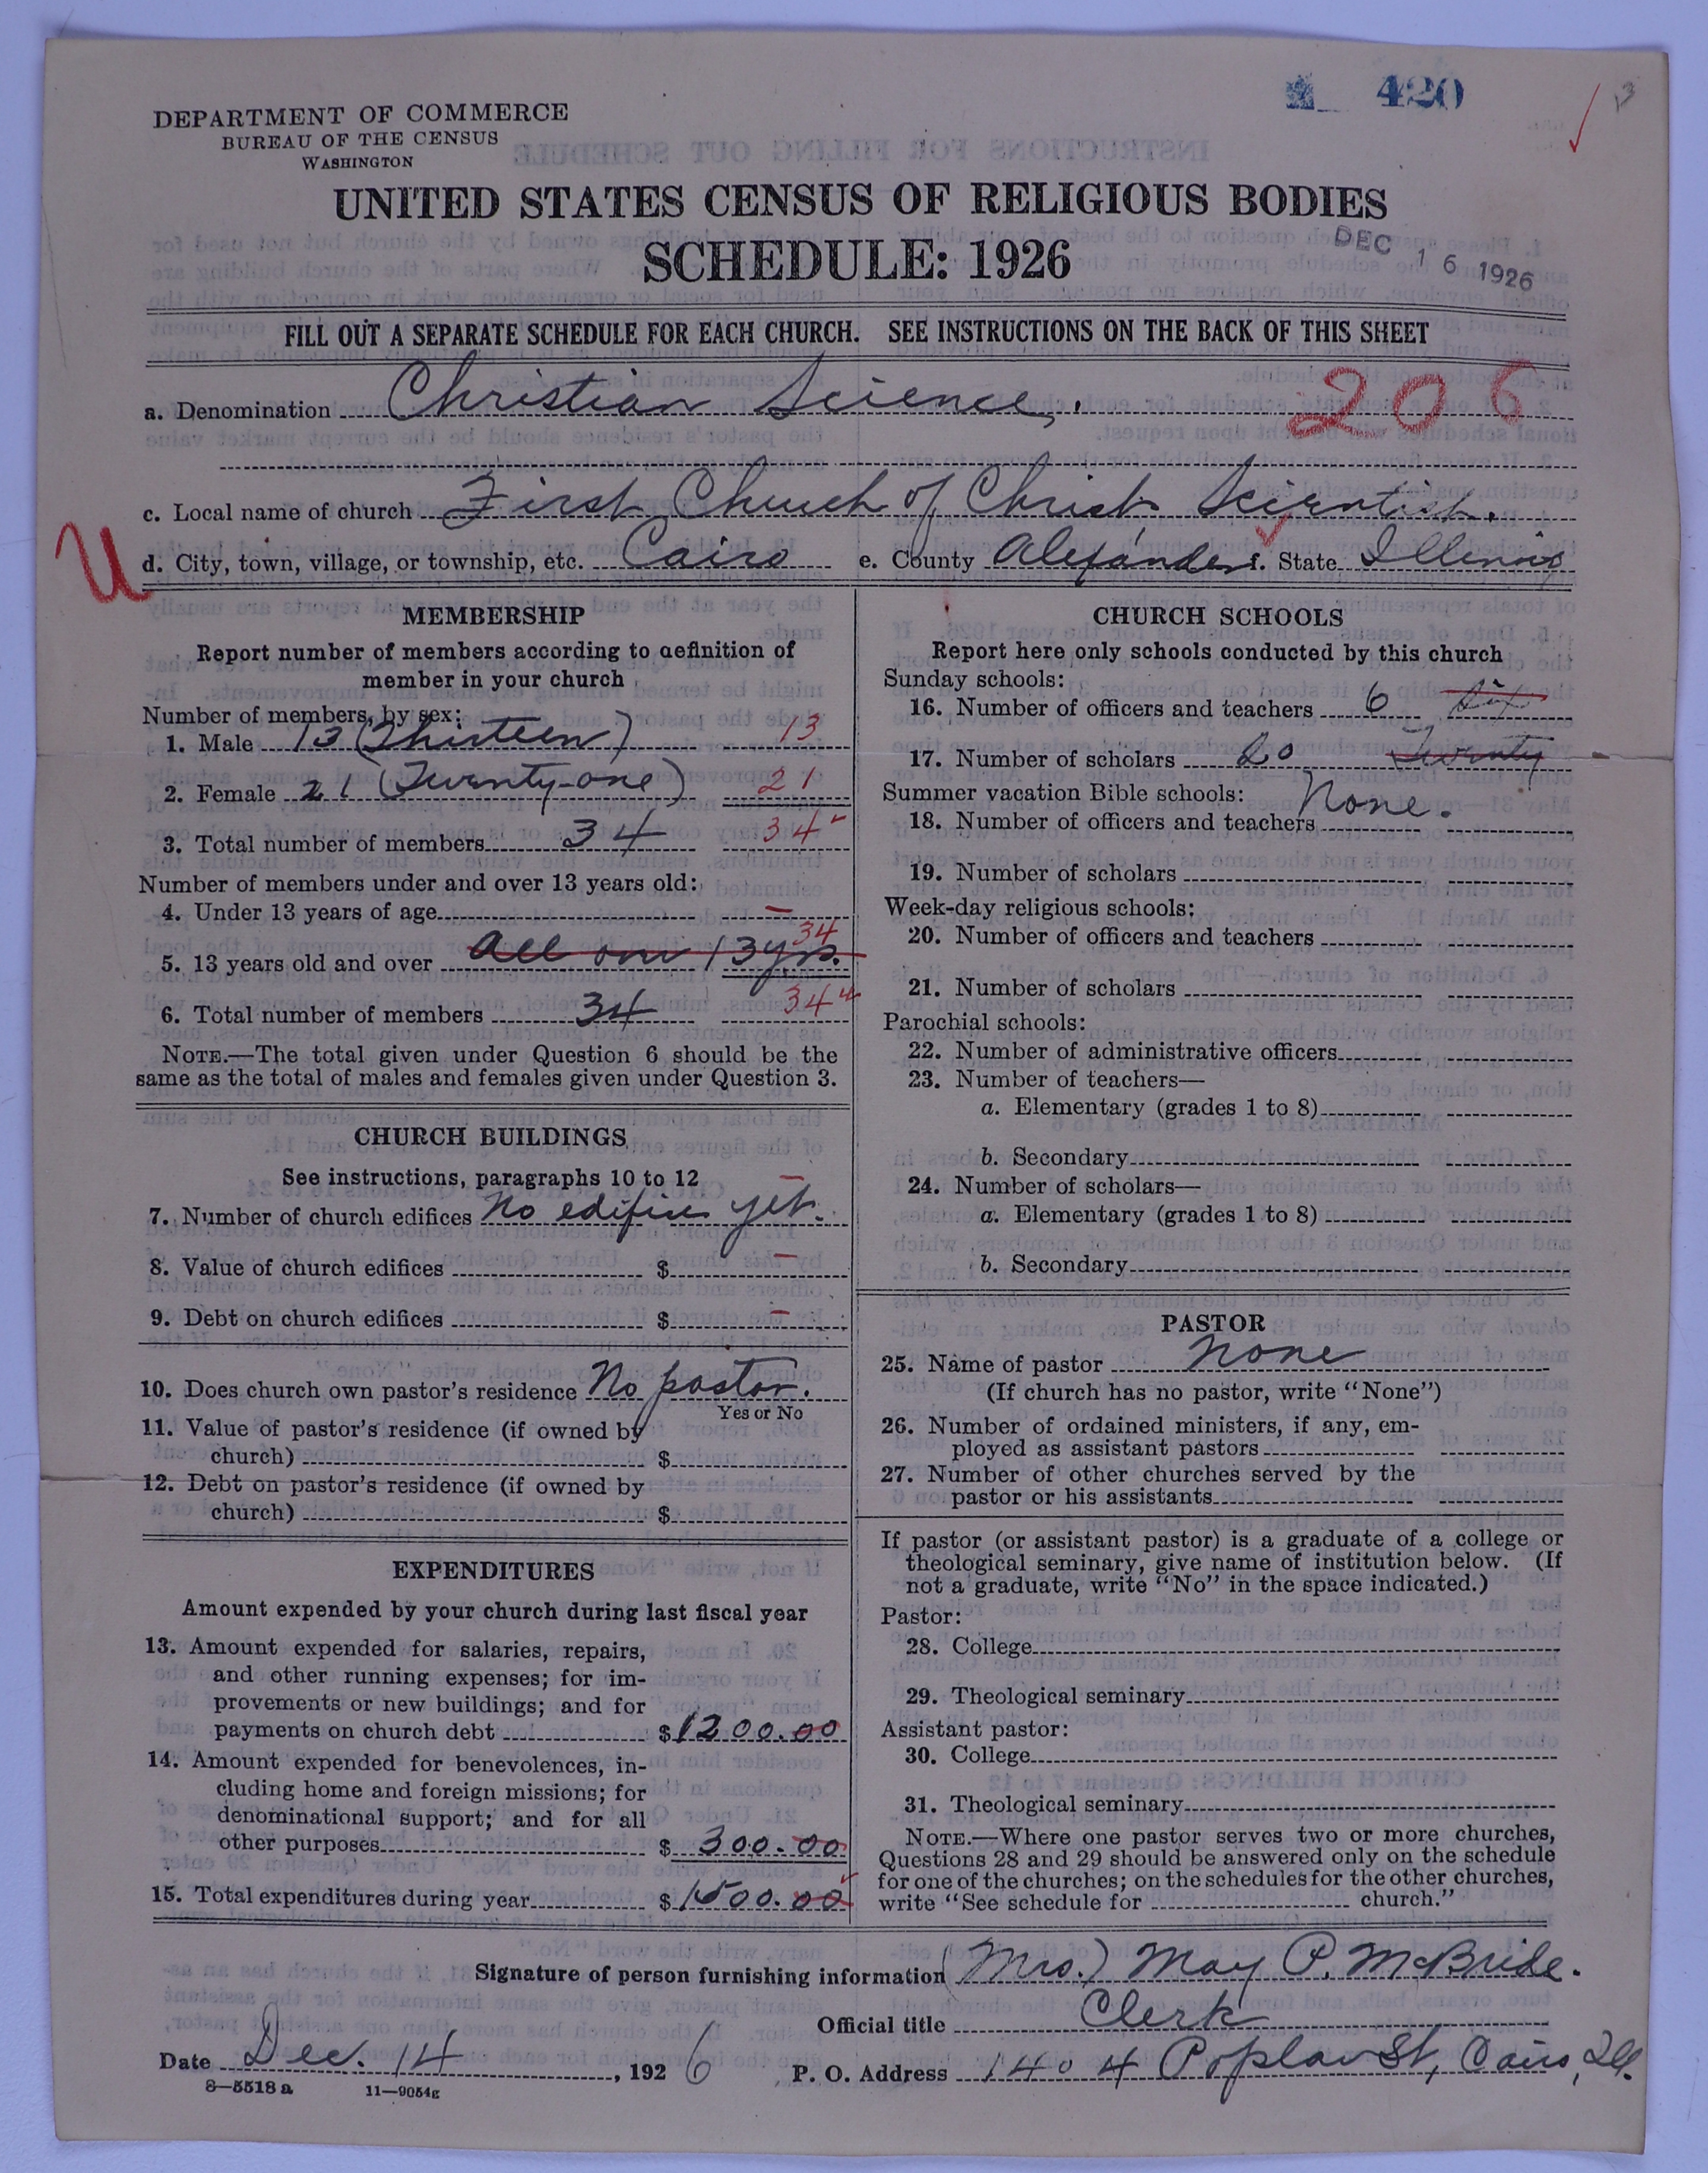 420
DEPARTMENT OF COMMERCE
BUREAU OF THE CENSUS
WASHINGTON
UNITED STATES CENSUS OF RELIGIOUS BODIES
SCHEDULE: 1926
DEC 16 1926
FILL OUT A SEPARATE SCHEDULE FOR EACH CHURCH. SEE INSTRUCTIONS ON THE BACK OF THIS SHEET
a. Denomination Christian Science. 206
c. Local name of church First Church of Christ Scientist.
U
d. City, town, village, or township, etc. Cairo e. County Alexander f. State Illinois
MEMBERSHIP
Report number of members according to definition of
member in your church
Number of members, by sex:
1. Male 13 (Thirteen) 13
2. Female 21 (Twenty-one) 21
3. Total number of members 34 34
Number of members under and over 13 years old:
4. Under 13 years of age –
5. 13 years old and over All over 13 yrs. 34
6. Total number of members 34 34
NOTE.—The total given under Question 6 should be the
same as the total of males and females given under Question 3.
CHURCH BUILDINGS
See instructions, paragraphs 10 to 12
7. Number of church edifices No edifice yet. –
8. Value of church edifices $ –
9. Debt on church edifices $ –
10. Does church own pastor's residence No pastor.
Yes or No
11. Value of pastor's residence (if owned by
church) $
12. Debt on pastor's residence (if owned by
church) $
EXPENDITURES
Amount expended by your church during last fiscal year
13. Amount expended for salaries, repairs,
and other running expenses; for im-
provements or new buildings; and for
payments on church debt $1200.00
14. Amount expended for benevolences, in-
cluding home and foreign missions; for
denominational support; and for all
other purposes $ 300.00
15. Total expenditures during year $1500.00
CHURCH SCHOOLS
Report here only schools conducted by this church
Sunday schools:
16. Number of officers and teachers 6 Six
17. Number of scholars 20 Twenty
Summer vacation Bible schools:
18. Number of officers and teachers None.
19. Number of scholars
Week-day religious schools:
20. Number of officers and teachers
21. Number of scholars
Parochial schools:
22. Number of administrative officers
23. Number of teachers—
a. Elementary (grades 1 to 8)
b. Secondary
24. Number of scholars—
a. Elementary (grades 1 to 8)
b. Secondary
PASTOR
25. Name of pastor None
(If church has no pastor, write "None")
26. Number of ordained ministers, if any, em-
ployed as assistant pastors
27. Number of other churches served by the
pastor or his assistants
If pastor (or assistant pastor) is a graduate of a college or
theological seminary, give name of institution below. (If
not a graduate, write "No" in the space indicated.)
Pastor:
28. College
29. Theological seminary
Assistant pastor:
30. College
31. Theological seminary
NOTE.—Where one pastor serves two or more churches,
Questions 28 and 29 should be answered only on the schedule
for one of the churches; on the schedules for the other churches,
write "See schedule for church."
Signature of person furnishing information (Mrs.) May P. McBride.
Official title Clerk
Date Dec. 14, 1926 P. O. Address 1404 Poplar St, Cairo, Ill.
8—5518 a 11—9054g